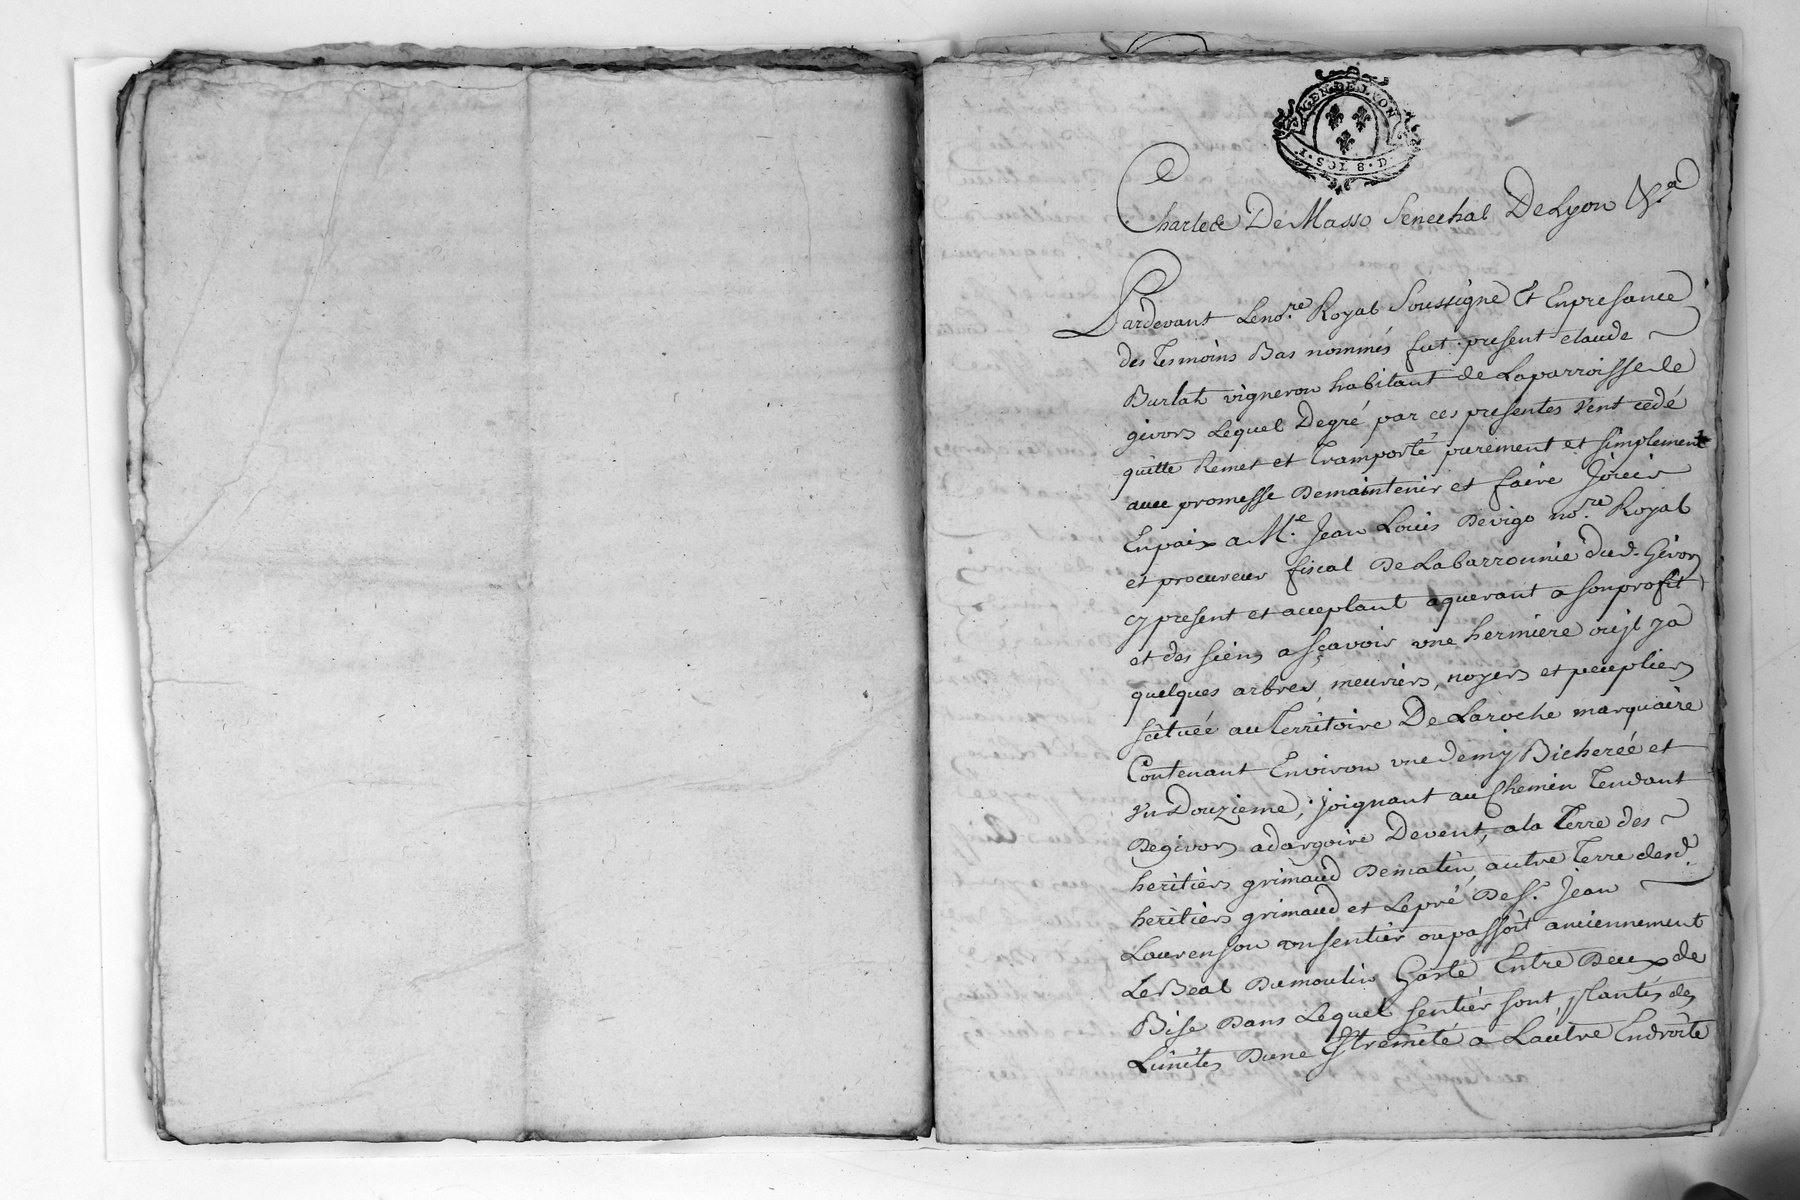 GEN.DE.LYON
1.SOL 8.D.
Charle de De Masso Senechal De Lyon &a
Pardevant Le no.re Royal Soussigné Et Enpresance
des Tesmoins Bas nommés fut present claude
Burlat vigneron habitant de Laparroisse de
givors Lequel Degré par ces presentes Vent cedé
quitte Remet et Transporté purement et simplement
avec promesse Demaintenir et faire Joüir
Enpaix a M.e Jean Louis Devigo no.re Royal
et procureur fiscal De Labarronnie dud. Givors
cy present et acceptant aquerant a sonprofit
et des siens a sçavoir une hermiere oujl ya
quelques arbres, meuriers, noyers et peupliers
scituée au Territoire De Laroche marquaire
Contenant Environ une demy Bicherée et
un Douzieme, joignant au Chemin Tendant
Degivors adargoire Devent, ala Terre des
heritiers grimaud Dematin, autre Terre desd.
heritiers grimaud et Lepré De S.r Jean
Laurenson un sentier ou passoit anciennement
Le Beal Dumoulin Garté Entre Deux de
Bise Dans Lequel sentier sont plantés des
Limites Dune Extremité a Lautre Endroite